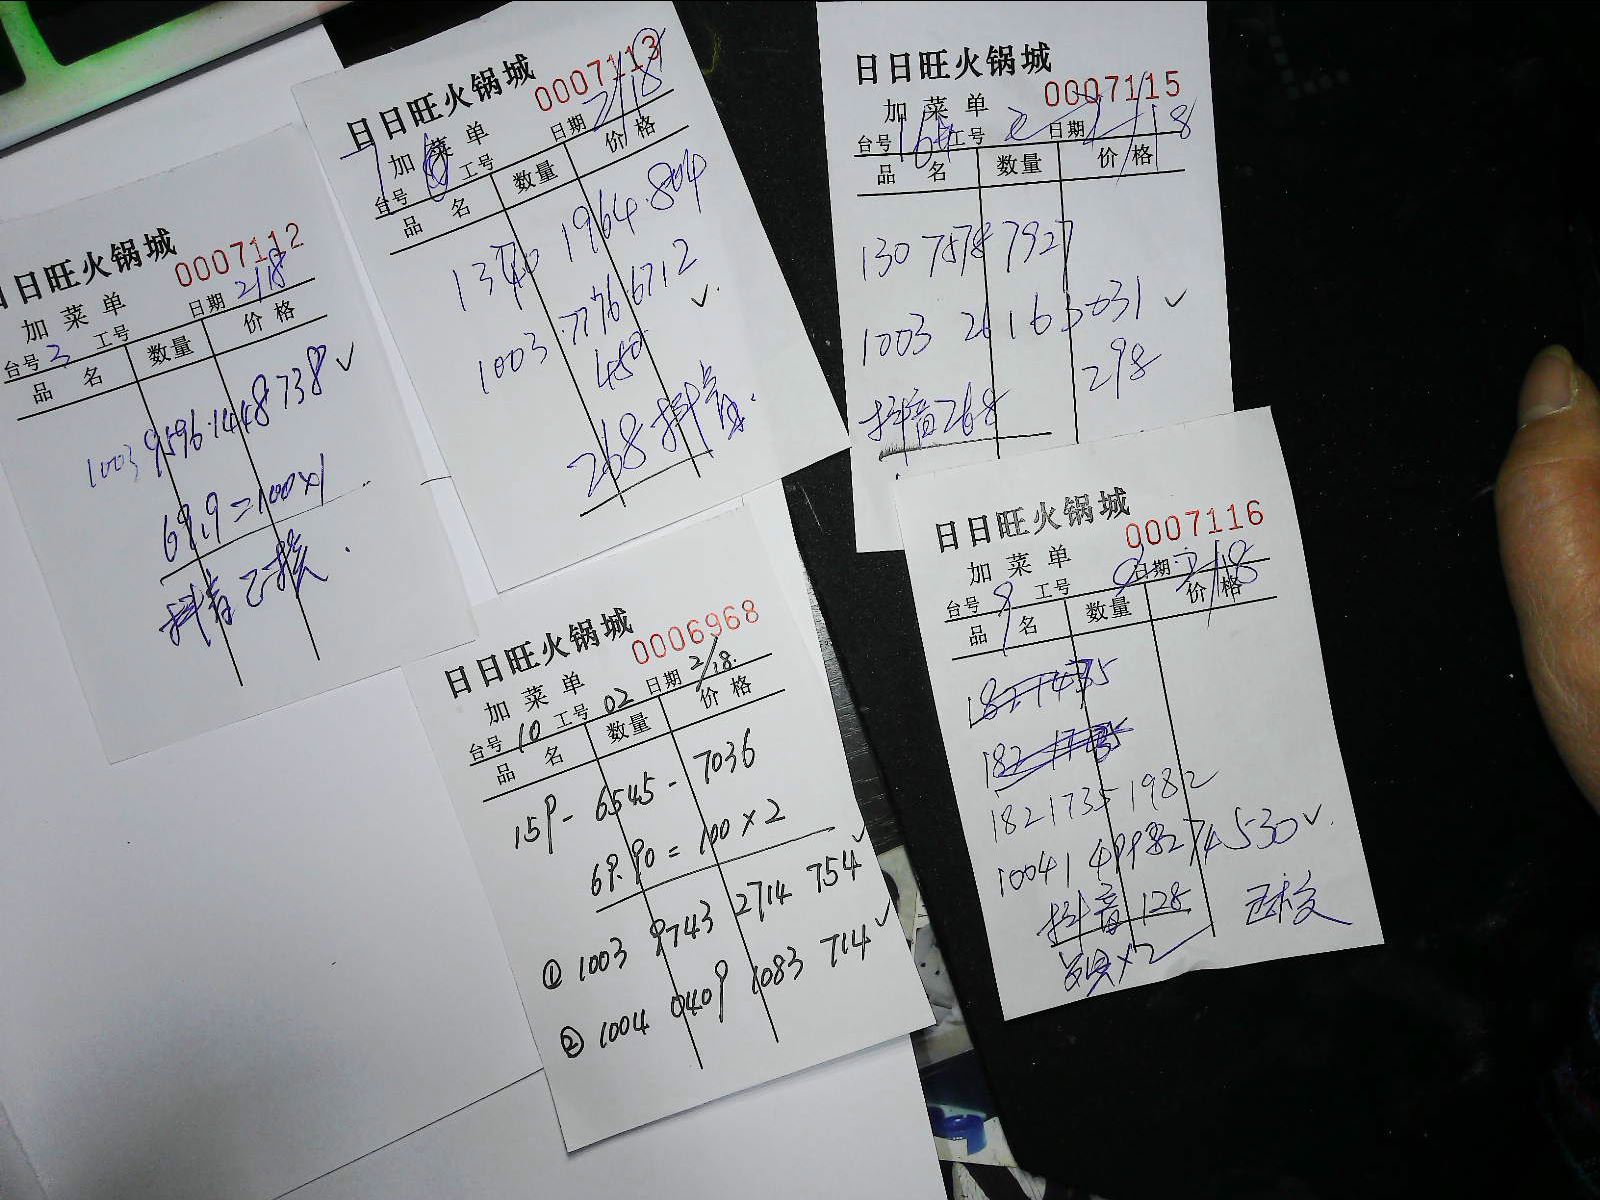 日日旺火锅城
0007112
加菜单
日期 2/18
台号 3 工号
品名 数量 价格
1003 9596·1448738 ✓
69.9=100×1
抖音已接
日日旺火锅城
0007113
加菜单
日期 2/18
台号 工号
品名 数量 价格
1964·804
1003·7776 6712
450 ✓
268·抖音
日日旺火锅城
0007115
加菜单
台号 16# 工号 2 日期 2/18
品名 数量 价格
130 7578 7927
1003 26 16 5031 ✓
298
抖音268
日日旺火锅城
0006968
加菜单
台号 10 工号 02 日期 2/18
品名 数量 价格
159-6545-7036
69.90=100×2
① 1003 9743 2714 754 ✓
② 1004 0409 1083 714 ✓
日日旺火锅城
0007116
加菜单
台号 9 工号 日期 2/18
品名 数量 价格
18217351982
10041 4998274530 ✓
抖音128